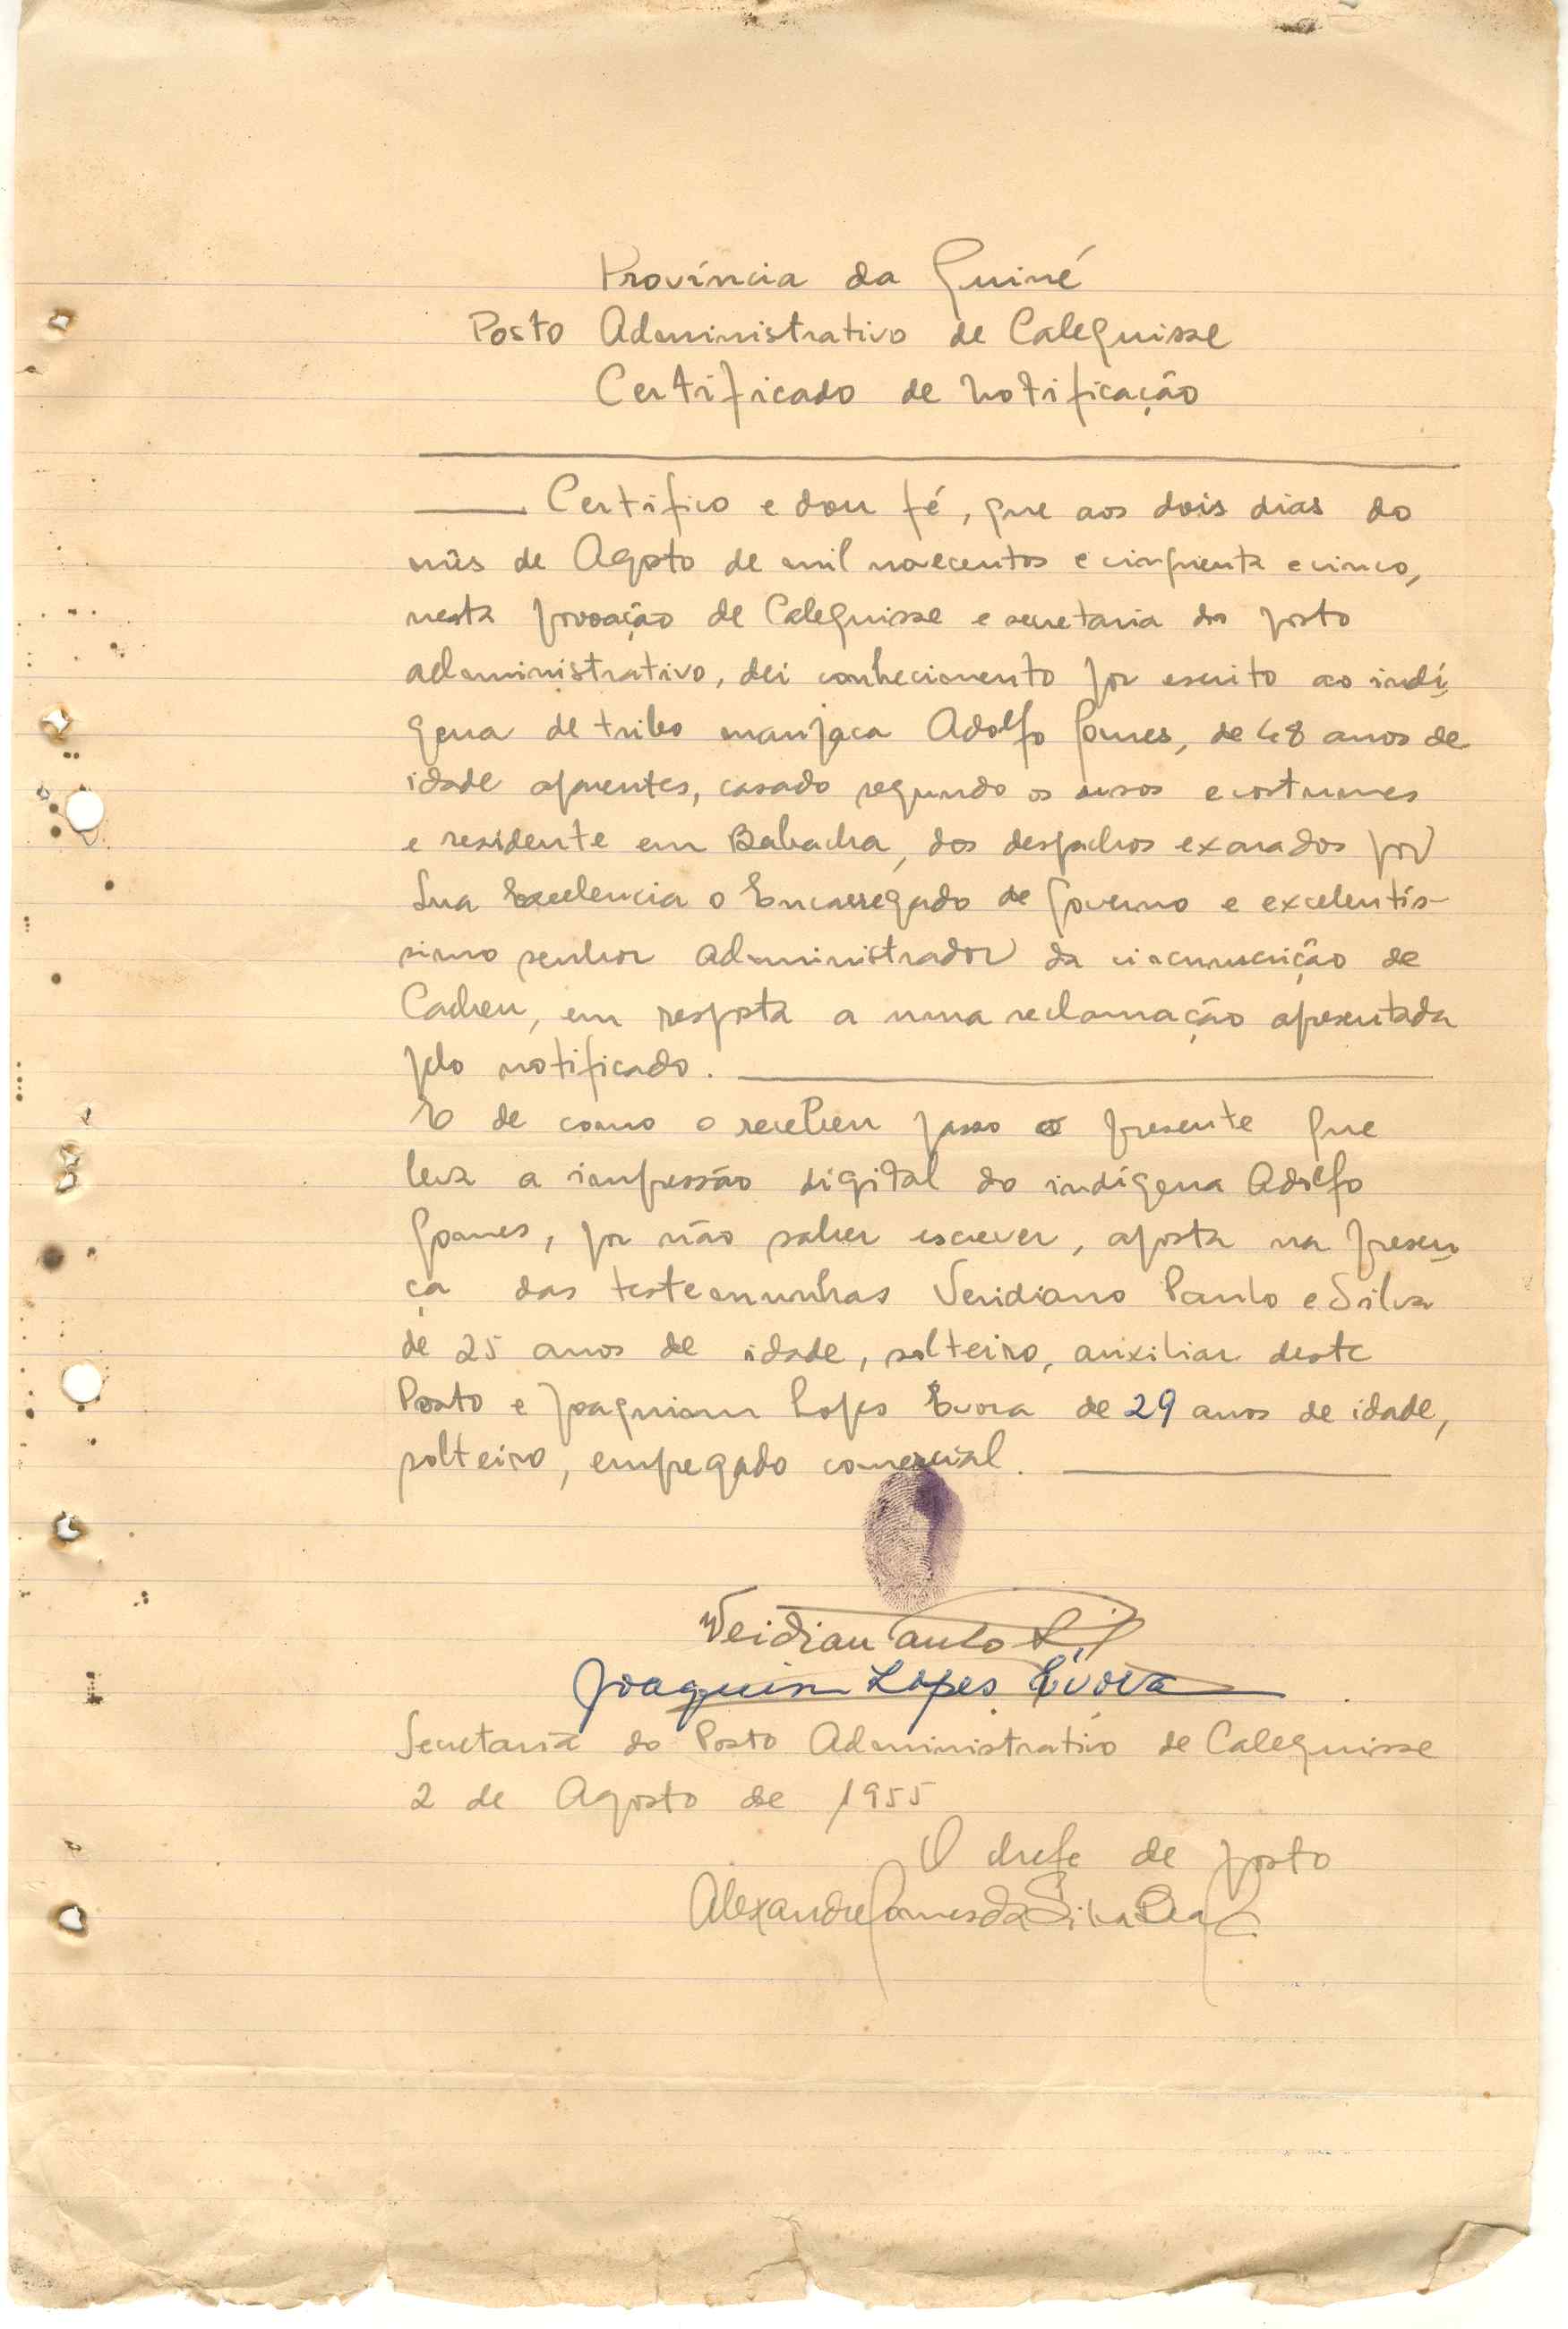 Província da Guiné
Posto Administrativo de Calequisse
Certificado de notificação
Certifico e dou fé, que aos dois dias do
mês de Agosto de mil novecentos e cinquenta e cinco,
nesta povoação de Calequisse e secretaria do posto
administrativo, dei conhecimento por escrito ao indí-
gena de tribo manjaca Adolfo Gomes, de 48 anos de
idade aparentes, casado segundo os usos e costumes
e residente em Babacha, dos despachos exarados por
Sua Excelencia o Encarregado de Governo e excelentís-
simo senhor administrador da circunscrição de
Cacheu, em resposta a uma reclamação apresentada
pelo notificado.
E de como o recebeu passo o presente que
leva a impressão digital do indígena Adolfo
Gomes, por não saber escrever, aposta na presen-
ça das testemunhas Veridiano Paulo e Silva
de 25 anos de idade, solteiro, auxiliar deste
Posto e Joaquim Lopes Evora de 29 anos de idade,
solteiro, empregado comercial.
Joaquim Lopes Évora
Secretaria do Posto Administrativo de Calequisse
2 de Agosto de 1955
O chefe de posto
Alexandre Gomes da Silva